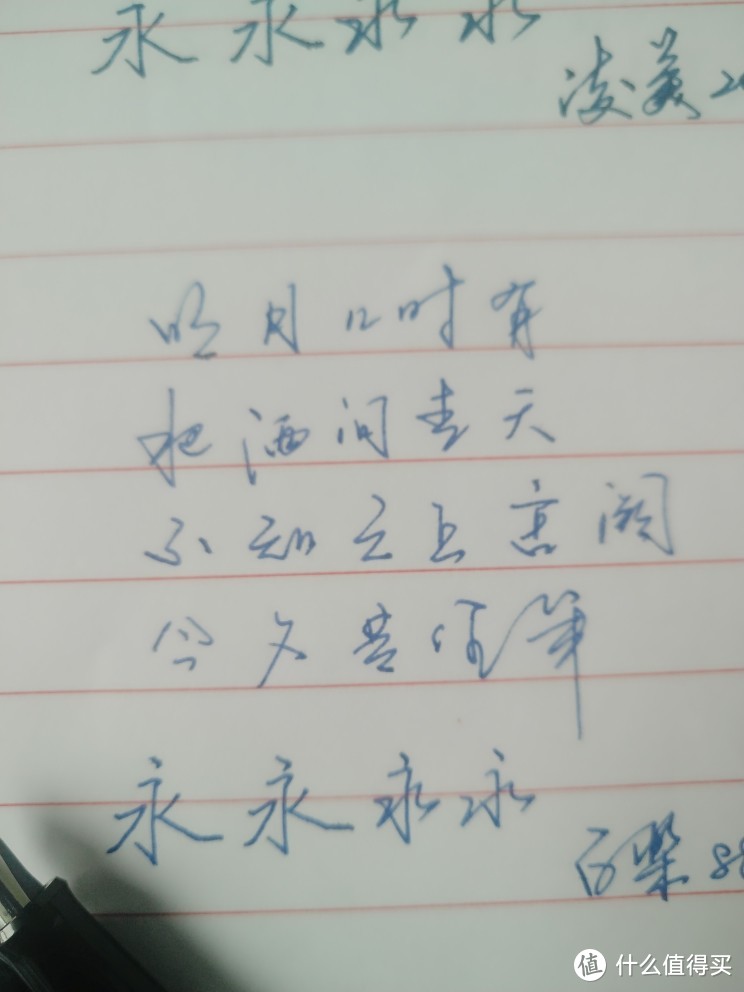 永永永永
凌美 2
明月几时有
把酒问青天
不知天上宫阙
今夕是何年
永永永永
百乐 88
什么值得买